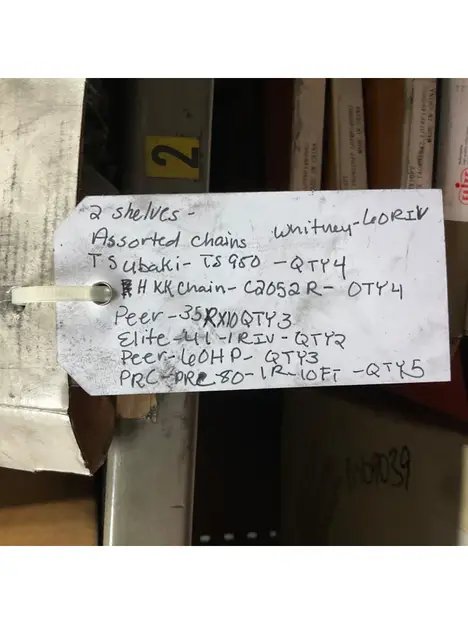 2
2 shelves -
Assorted chains Whitney-60RIV
TSubaki - TS950 - QTY4
HKK Chain - C2052R - QTY4
Peer - 35RX10 QTY3
Elite - 41 - 1RIV - QTY2
Peer - 60HP - QTY3
PRC - DRC-80-1R-10FT - QTY5
MADE IN CHINA
09039